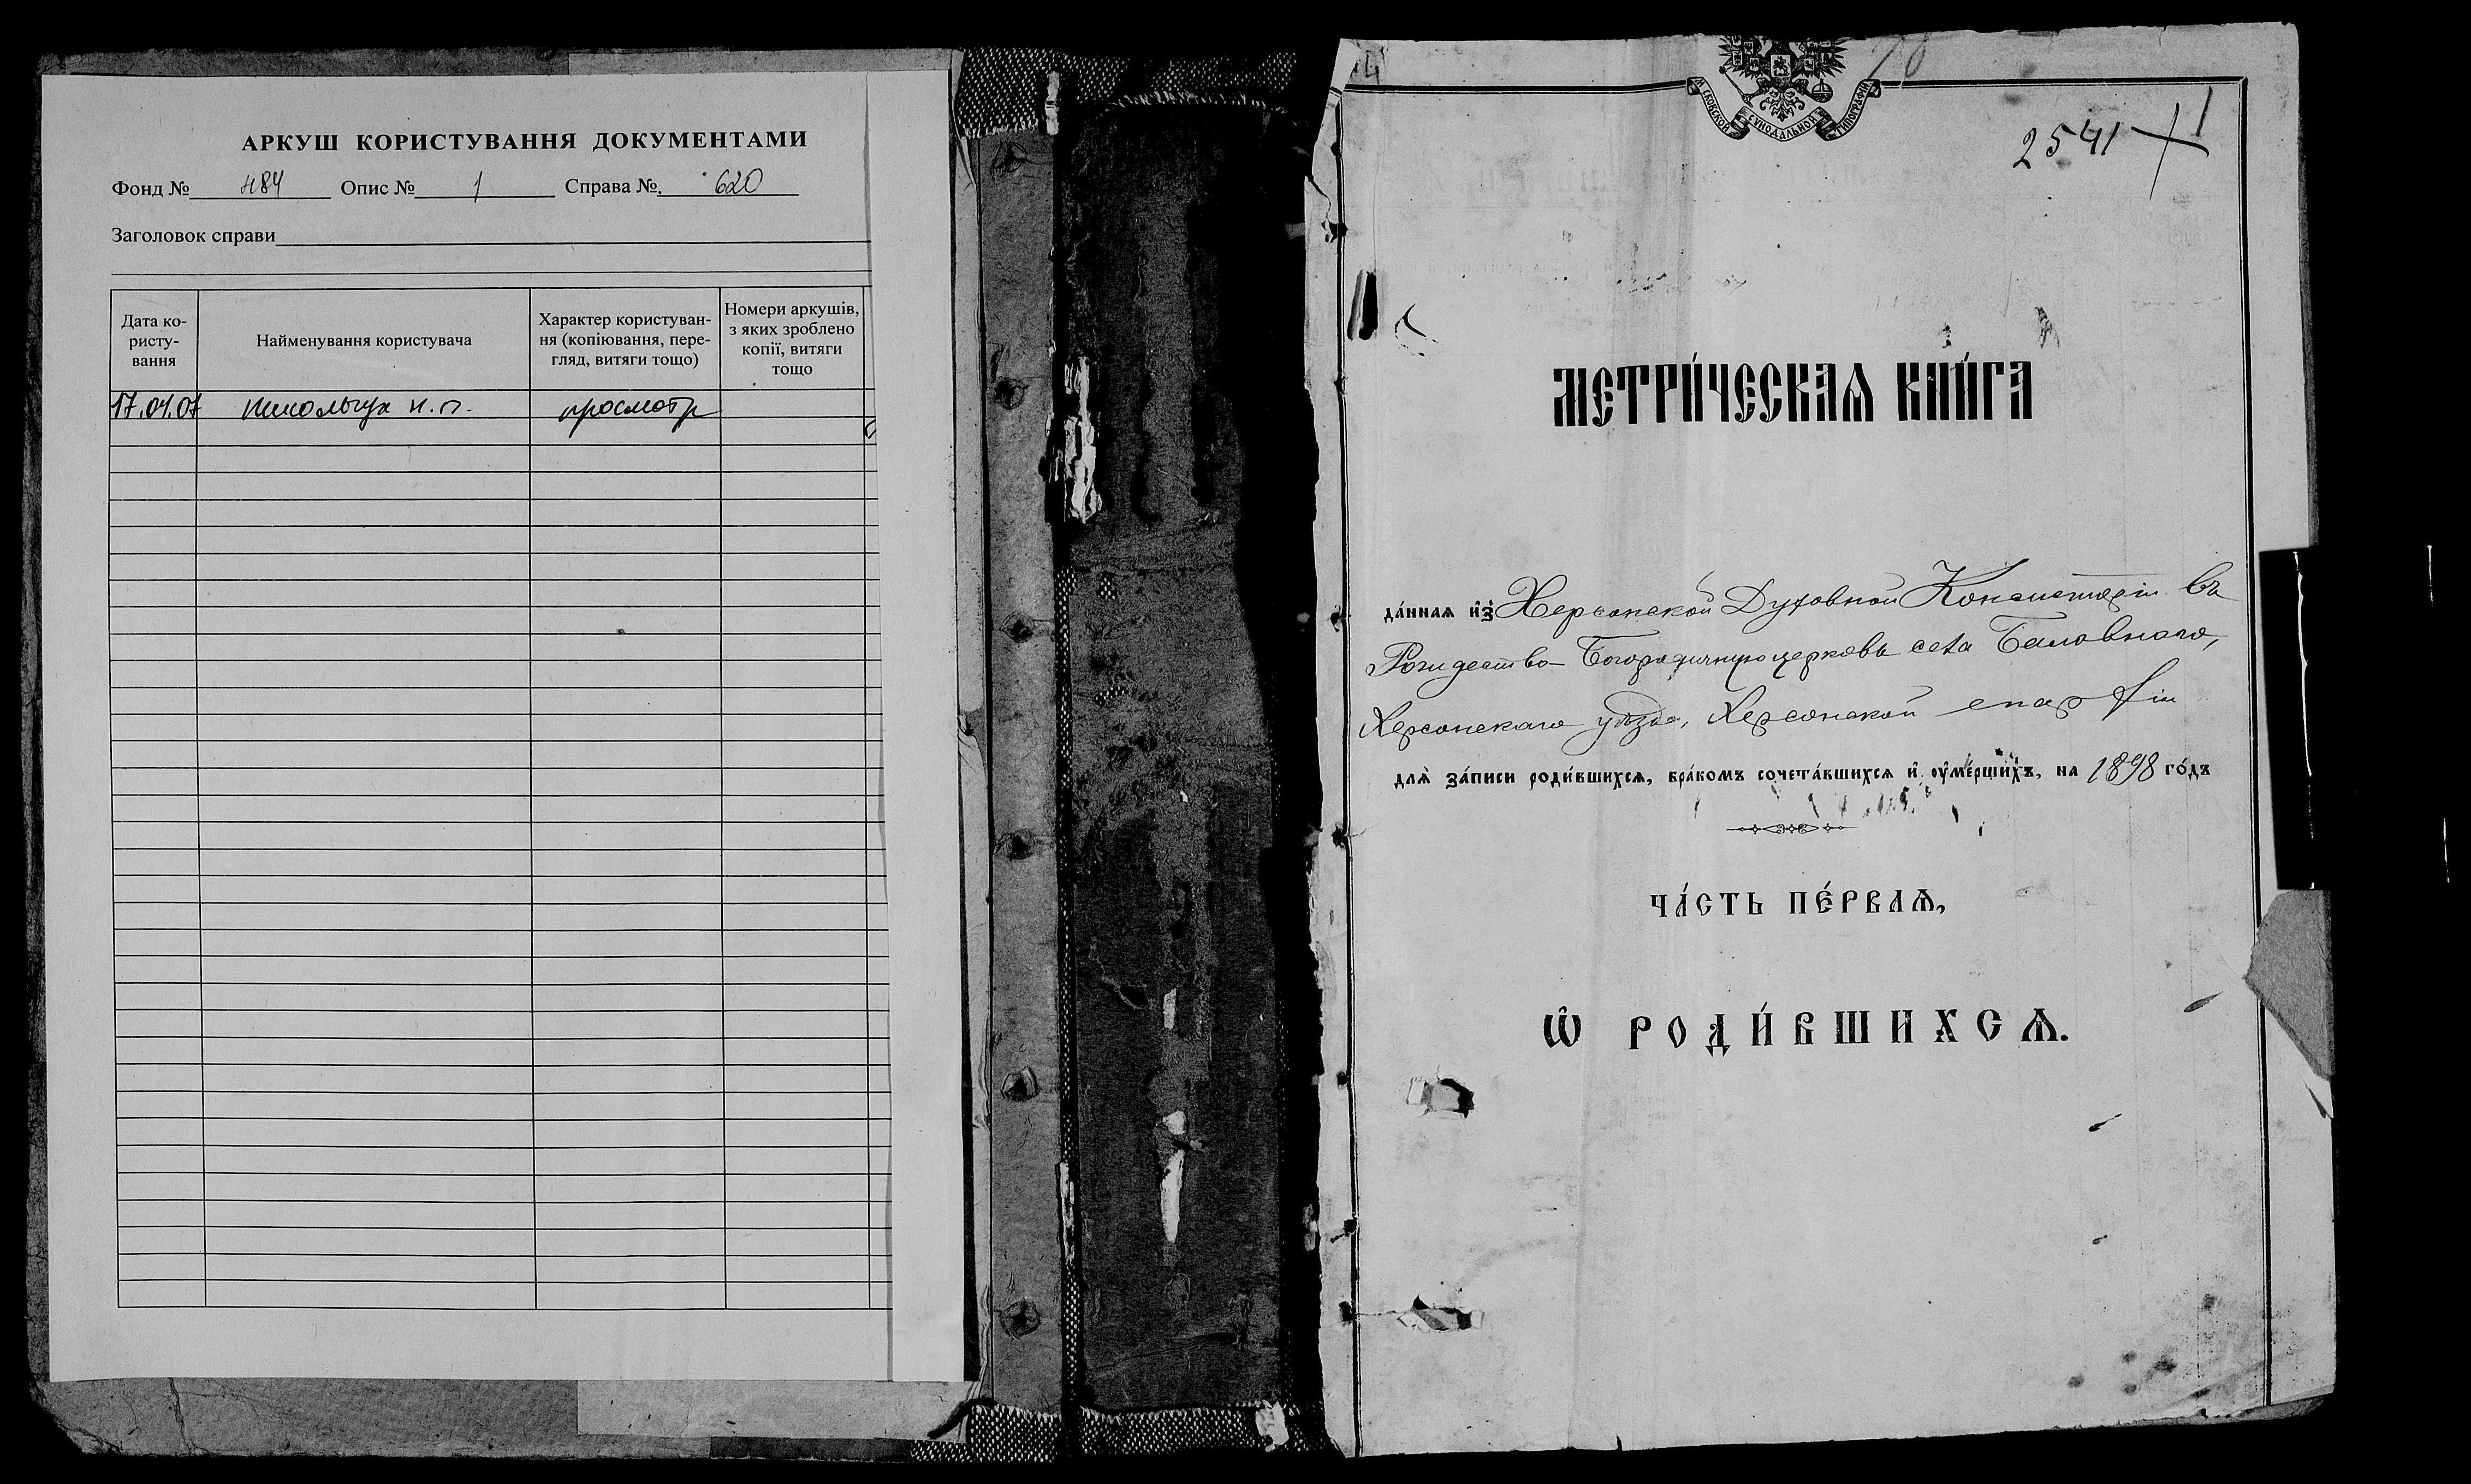 АРКУШ КОРИСТУВАННЯ ДОКУМЕНТАМИ
Фонд № 484 Опис № 1 Справа № 620
Заголовок справи
Дата ко-
ристу-
вання
Найменування користувача
Характер користуван-
ня (копіювання, пере-
гляд, витяги тощо)
Номери аркушів,
з яких зроблено
копії, витяги
тощо
17.04.07 просмотр
МОСКОВСКОЙ СѴНОДАЛЬНОЙ ТИПОГРАФІИ
2541
1
МЕТРИ́ЧЕСКАѦ КНИ́ГА
да́нная и҆з̾ Херсонской Духовной Консисторіи въ
Рождество-Богородичную церковь села Баловнаго,
Херсонскаго уѣзда, Херсонской епархіи
для̀ за́писи роди́вшихсѧ, бра́комъ сочета́вшихсѧ и҆ ᲂу҆ме́ршихъ, на 1898 го́дъ
ЧА́СТЬ ПЕ́РВАѦ,
Ѽ РОДИ́ВШИХСѦ.